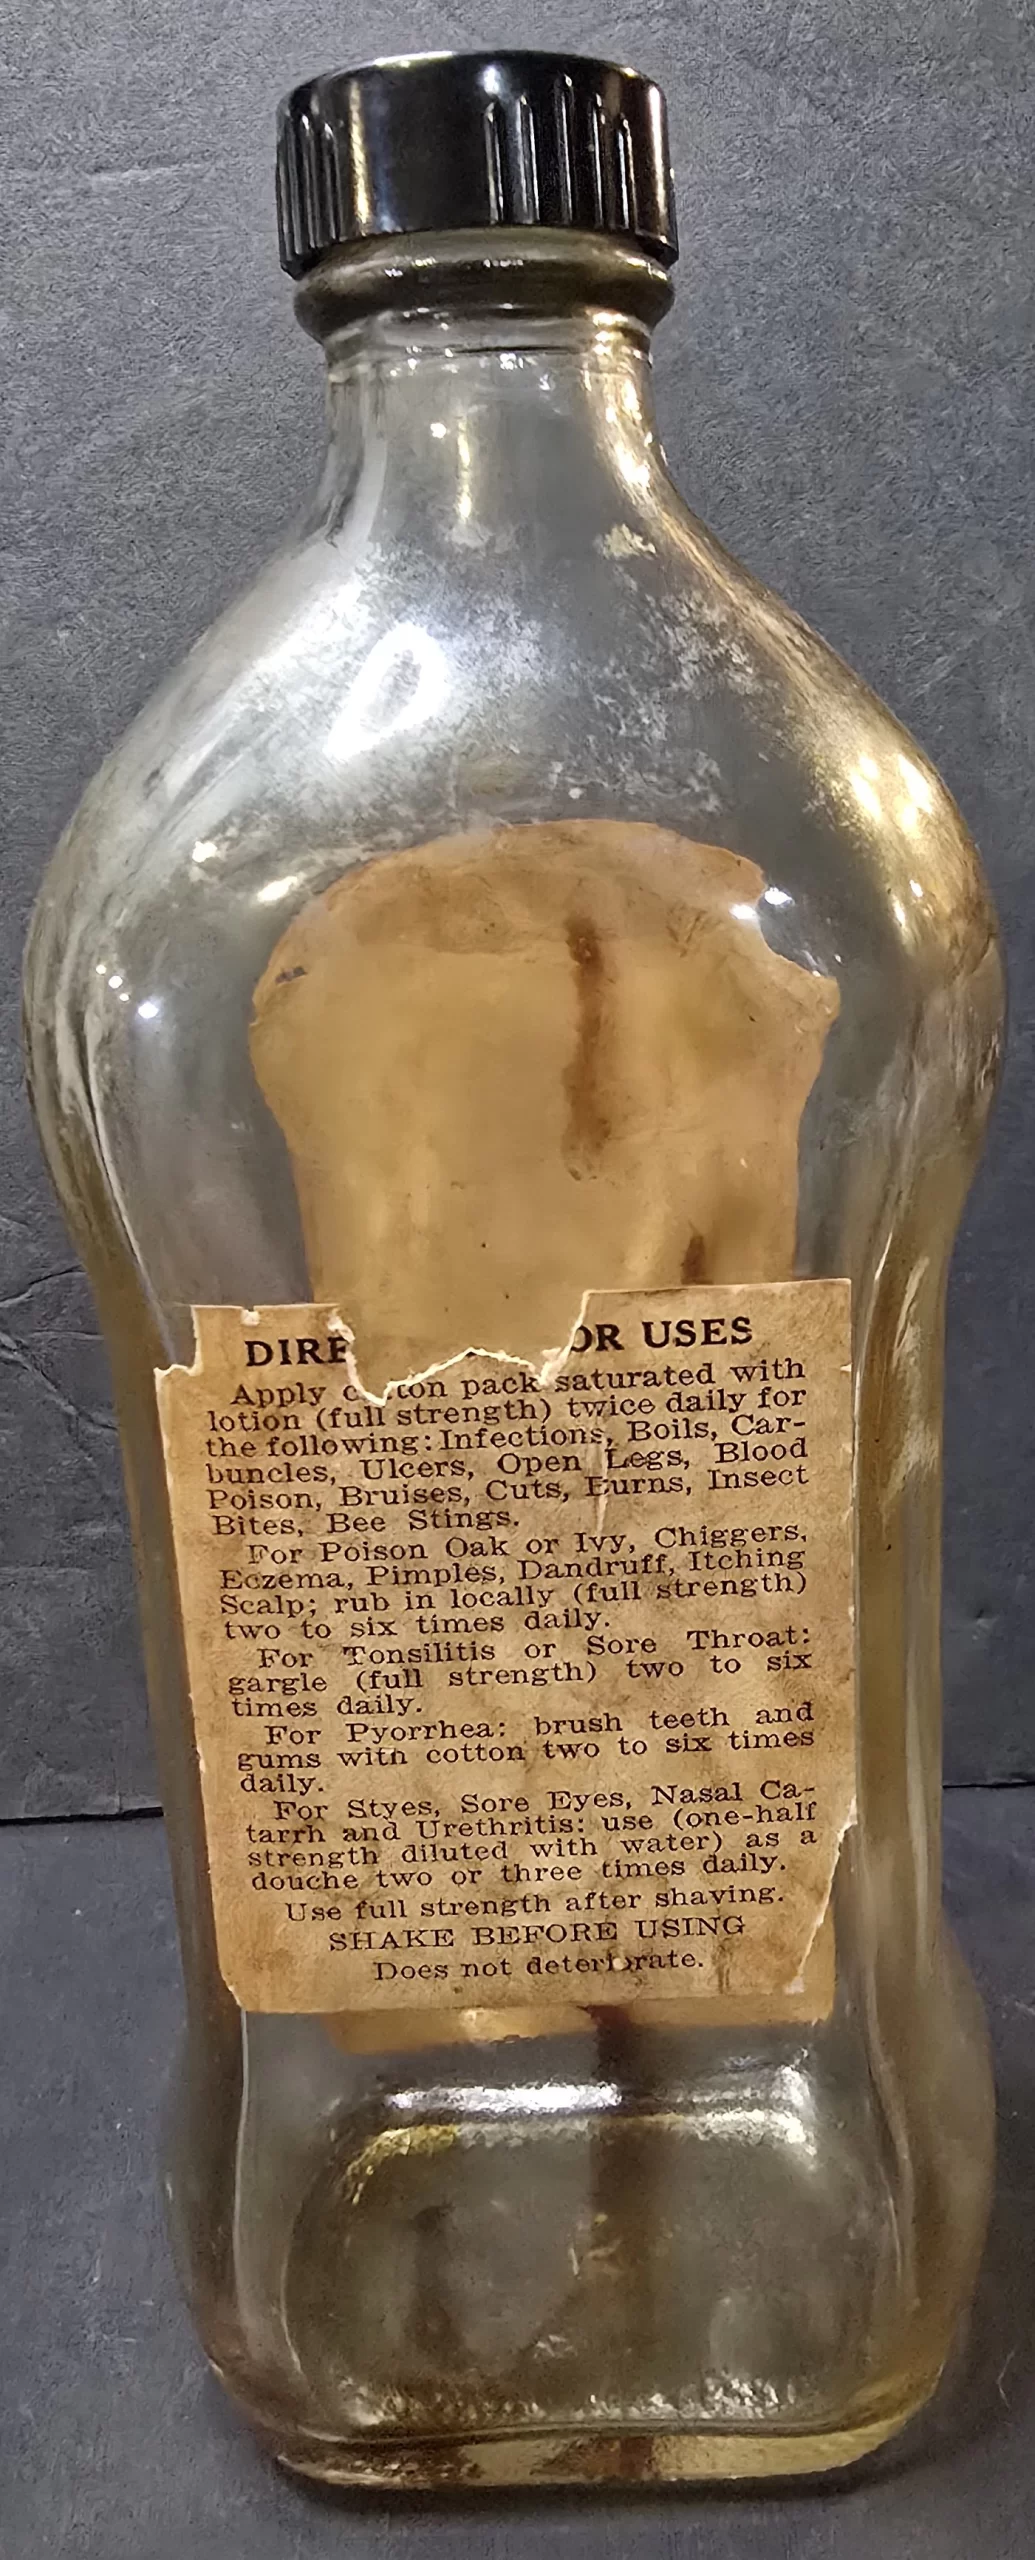 DIRE OR USES
Apply cotton pack saturated with
lotion (full strength) twice daily for
the following: Infections, Boils, Car-
buncles, Ulcers, Open Legs, Blood
Poison, Bruises, Cuts, Burns, Insect
Bites, Bee Stings.
For Poison Oak or Ivy, Chiggers,
Eczema, Pimples, Dandruff, Itching
Scalp; rub in locally (full strength)
two to six times daily.
For Tonsilitis or Sore Throat:
gargle (full strength) two to six
times daily.
For Pyorrhea: brush teeth and
gums with cotton two to six times
daily.
For Styes, Sore Eyes, Nasal Ca-
tarrh and Urethritis: use (one-half
strength diluted with water) as a
douche two or three times daily.
Use full strength after shaving.
SHAKE BEFORE USING
Does not deteriorate.